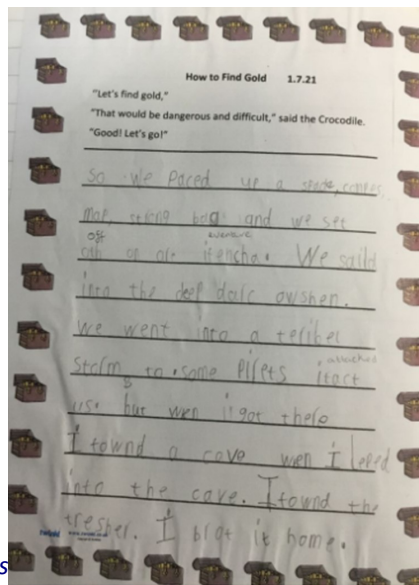 How to Find Gold 1.7.21
"Let's find gold,"
"That would be dangerous and difficult," said the Crocodile.
"Good! Let's go!"
So we Paced up a spade, compes,
map, strong bag and we set
off
oth on are
We saild
into the deep darc owshen.
we went into a teribel
attacked
storm to some Pirets itact
us. but wen i got there
I townd a cave wen I leped
into the cave. I townd the
tresher. I brot it home.
twinkl
s